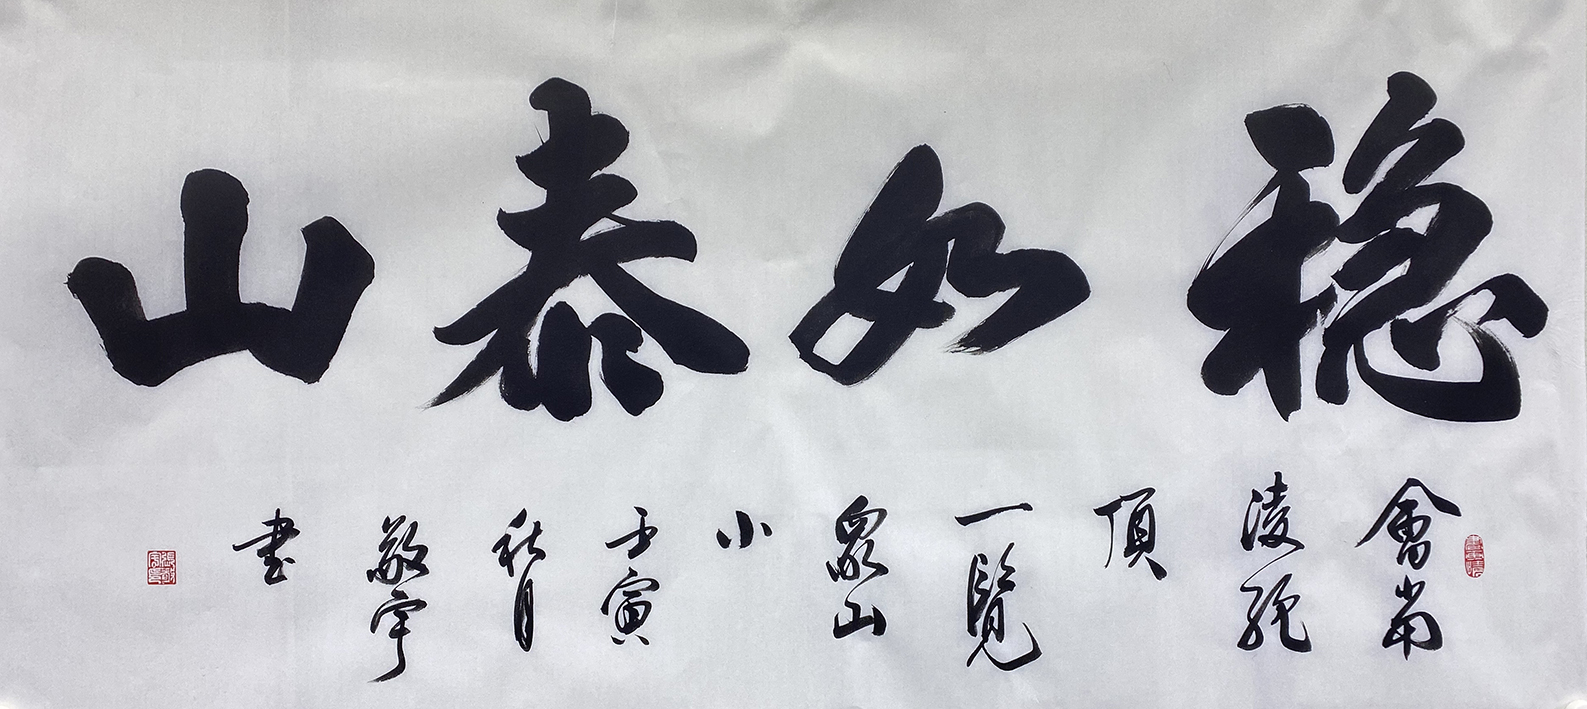 稳如泰山
會當
凌絕
頂
一覽
衆山
小
壬寅
秋月
敬宇
書